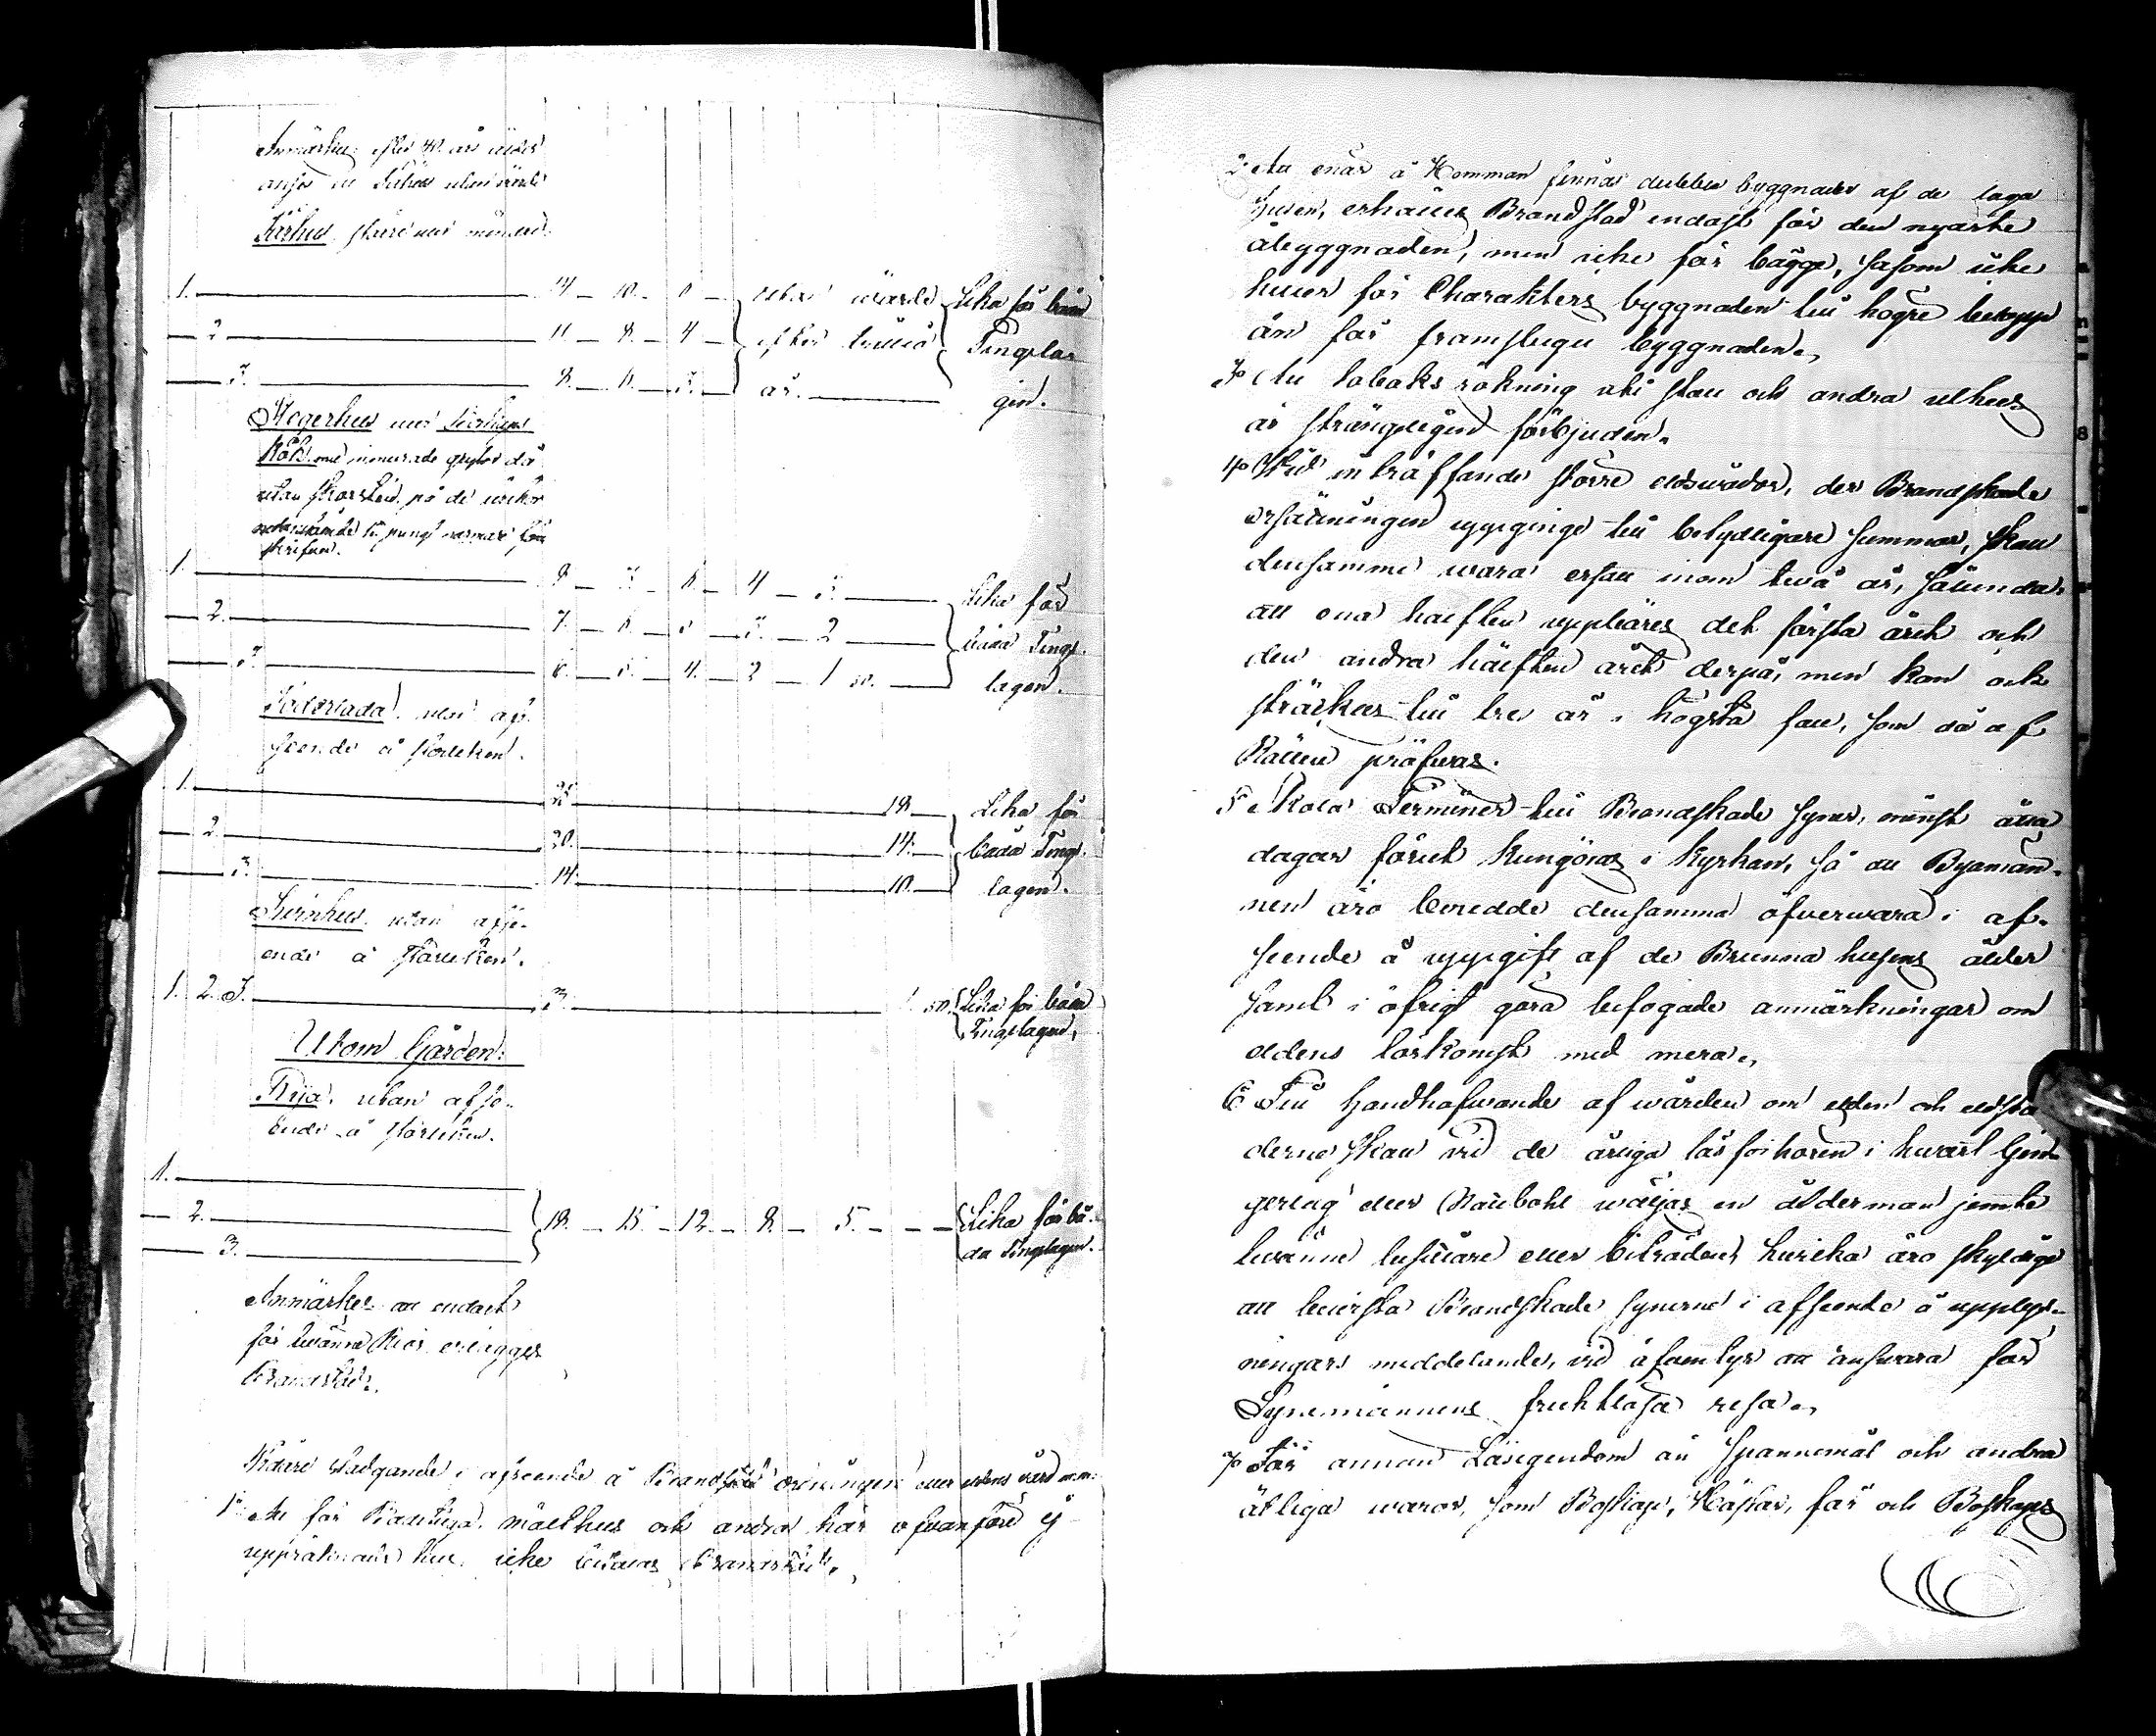 Anmärkes efter 40 år äldre
anses ett Fähus utan värde
Fårhus
1. 14 — 10 — 6 — utan wärde Lika för båda
2 11 — 8 — 4 — efter tillika Tingsla-
3. 8 — 6 — 3 — år. gen.
Stegerhus med
Kök med inmurade grytor då
utan skorsten, på de orter
skrifven.
1. 9 — 7 — 6 — 4 — 3 Lika för
2. 7 — 6 — 5 — 3 — 2 båda Tings-
3. 6 — 5 — 4 — 2 — 1 50. lagen.
Foderlada utan af-
seende å storleken.
1. 25 18 Lika för
2. 20. 14. båda Tings-
3. 14 10. lagen.
utan afse-
ende å storleken.
1. 2. 3. 3. 1 50. Lika för båda
Tingslagen.
Utom Gården:
Rija utan afse-
ende å storleken.
1.
2. 18. — 15 — 12 — 8 — 5 — Lika för bå-
3. da Tingslagen.
Anmärkes att endast
för twänne Rior erlägges
Brandstod.
Widare stadgande i afseende å Brandstods ordningen eller eldens vård m.m.
1o Att för Badstuga, mälthus och andra här ofvanföre ej
upptagna hus icke brandstod.
2o Att enär å Hemman finnas dubbla byggnader af de laga
husen, erhålles Brandstod endast för den nyaste
åbyggnaden, men icke för bägge, såsom icke
heller för Charakters byggnaden till högre belopp
än för framstugu byggnaden.
3o Att tobaks rökning uti stall och andra uthus
är strängeligen förbjuden.
4o Wid inträffande större eldswådor, der Brandskade
ersättningen uppginge till betydligare summor, skall
densamma wara ersatt inom twå år, sålunda,
att ena hälften uppbäres det första året och
den andra hälften året derpå, men kan ock
sträckas till tre år i högsta fall, som då af
Rätten pröfwas.
5o Skola Terminer till Brandskade syner, minst åtta
dagar förut kungöras i Kyrkan, så att Byamän-
nen äro beredde densamma öfverwara i af-
seende å uppgift af de Brunna husens ålder
samt i öfrigt göra befogade anmärkningar om
eldens löskomst med mera.
6o Till handhafwande af wården om elden och eldstä-
derne skall vid de årliga läsförhören i hwart Gin-
gerlag eller Rättbohl wäljas en ålderman jemte
twänne besittare eller biträden, hwilka äro skyldige
att bewista Brandskade synerne i afseende å upplys-
ningars meddelande, vid äfwentyr att answara för
Synemännens fruktlösa resa.
7o För annan Lösegendom än Spannemål och andra
ätliga waror, som Boskap, Hästar, får och Boskaps